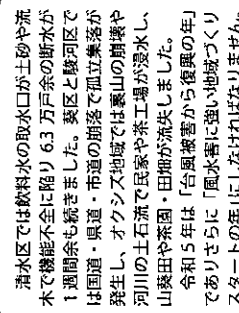 清水区では飲料水の取水口が土砂や流
木で機能不全に陥り 6.3 万戸余の断水が
1 週間余も続きました。葵区と駿河区で
は国道・県道・市道の崩落で孤立集落が
発生し、オクシズ地域では裏山の崩壊や
河川の土石流で民家や茶工場が浸水し、
山葵田や茶園・田畑が流失しました。
令和 5 年は「台風被害から復興の年」
でありさらに「風水害に強い地域づくり
スタートの年」にしなければなりません。